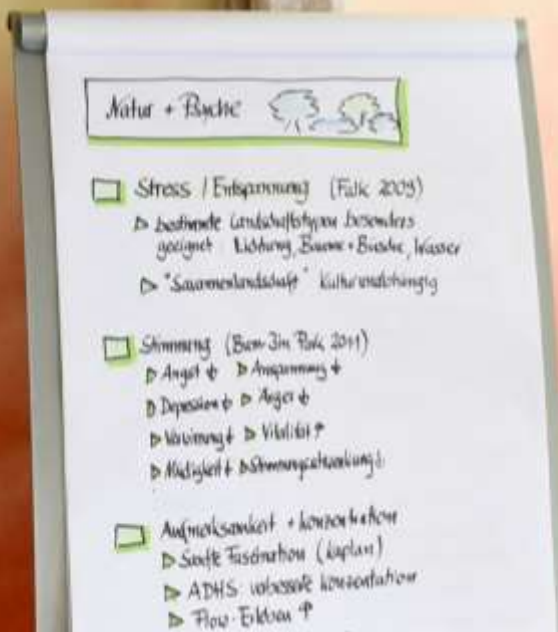 Natur + Psyche
Stress / Entspannung (Falk 2009)
bestimmte Landschaftstypen besonders
geeignet Lichtung, Bäume + Büsche, Wasser
"Savannenlandschaft" kulturunabhängig
Stimmung (Bum-Jin Park 2011)
Angst ↓ Anspannung ↓
Depression ↓ Ärger ↓
Verwirrung ↓ Vitalität ↑
Müdigkeit ↓ Stimmungsschwankung ↓
Aufmerksamkeit + Konzentration
Sanfte Faszination (Kaplan)
ADHS verbesserte Konzentration
Flow-Erleben ↑